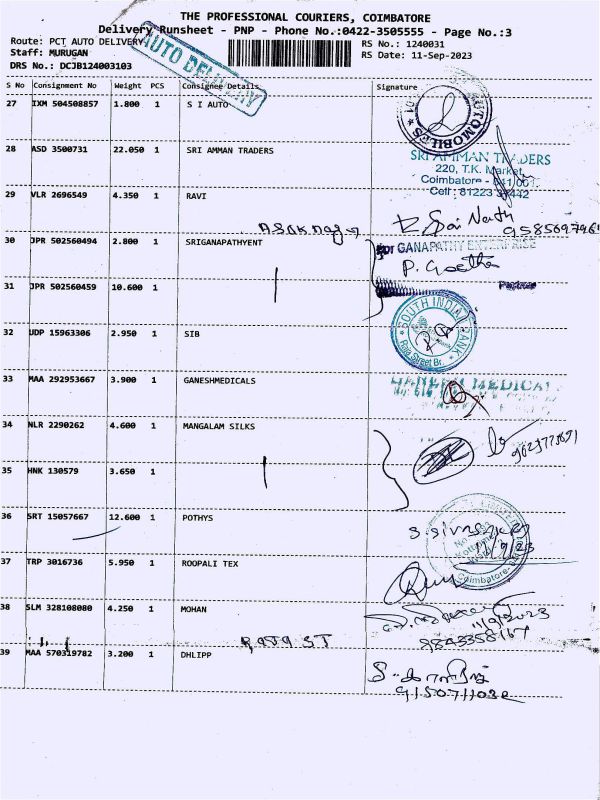 THE PROFESSIONAL COURIERS, COIMBATORE
Delivery Runsheet - PNP - Phone No.:0422-3505555 - Page No.:3
Route: PCT AUTO DELIVERY
RS No.: 1240031
Staff: MURUGAN
RS Date: 11-Sep-2023
DRS No.: DCJB124003103
AUTO DELIVERY
S No Consignment No Weight PCS Consignee Details Signature
27 IXM 504508857 1.800 1 S I AUTO
AUTOMOBILES
28 ASD 3500731 22.050 1 SRI AMMAN TRADERS
SRI AMMAN TRADERS
220, T.K. Market
Coimbatore - 641 001
Cell : 81223
29 VLR 2696549 4.350 1 RAVI
Sai Nath
30 JPR 502560494 2.800 1 SRIGANAPATHYENT
For GANAPATHY ENTERPRISE
P. Geetha
31 JPR 502560459 10.600 1
Partner
32 UDP 15963306 2.950 1 SIB
SOUTH INDIAN BANK
Raja Street Br.
33 MAA 292953667 3.900 1 GANESHMEDICALS
GANESH MEDICAL
34 NLR 2290262 4.600 1 MANGALAM SILKS
35 HNK 130579 3.650 1
36 SRT 15057667 12.600 1 POTHYS
11/9/23
Coimbatore
37 TRP 3016736 5.950 1 ROOPALI TEX
38 SLM 328108080 4.250 1 MOHAN
11/9/2023
RAJA ST
39 MAA 570319782 3.200 1 DHLIPP